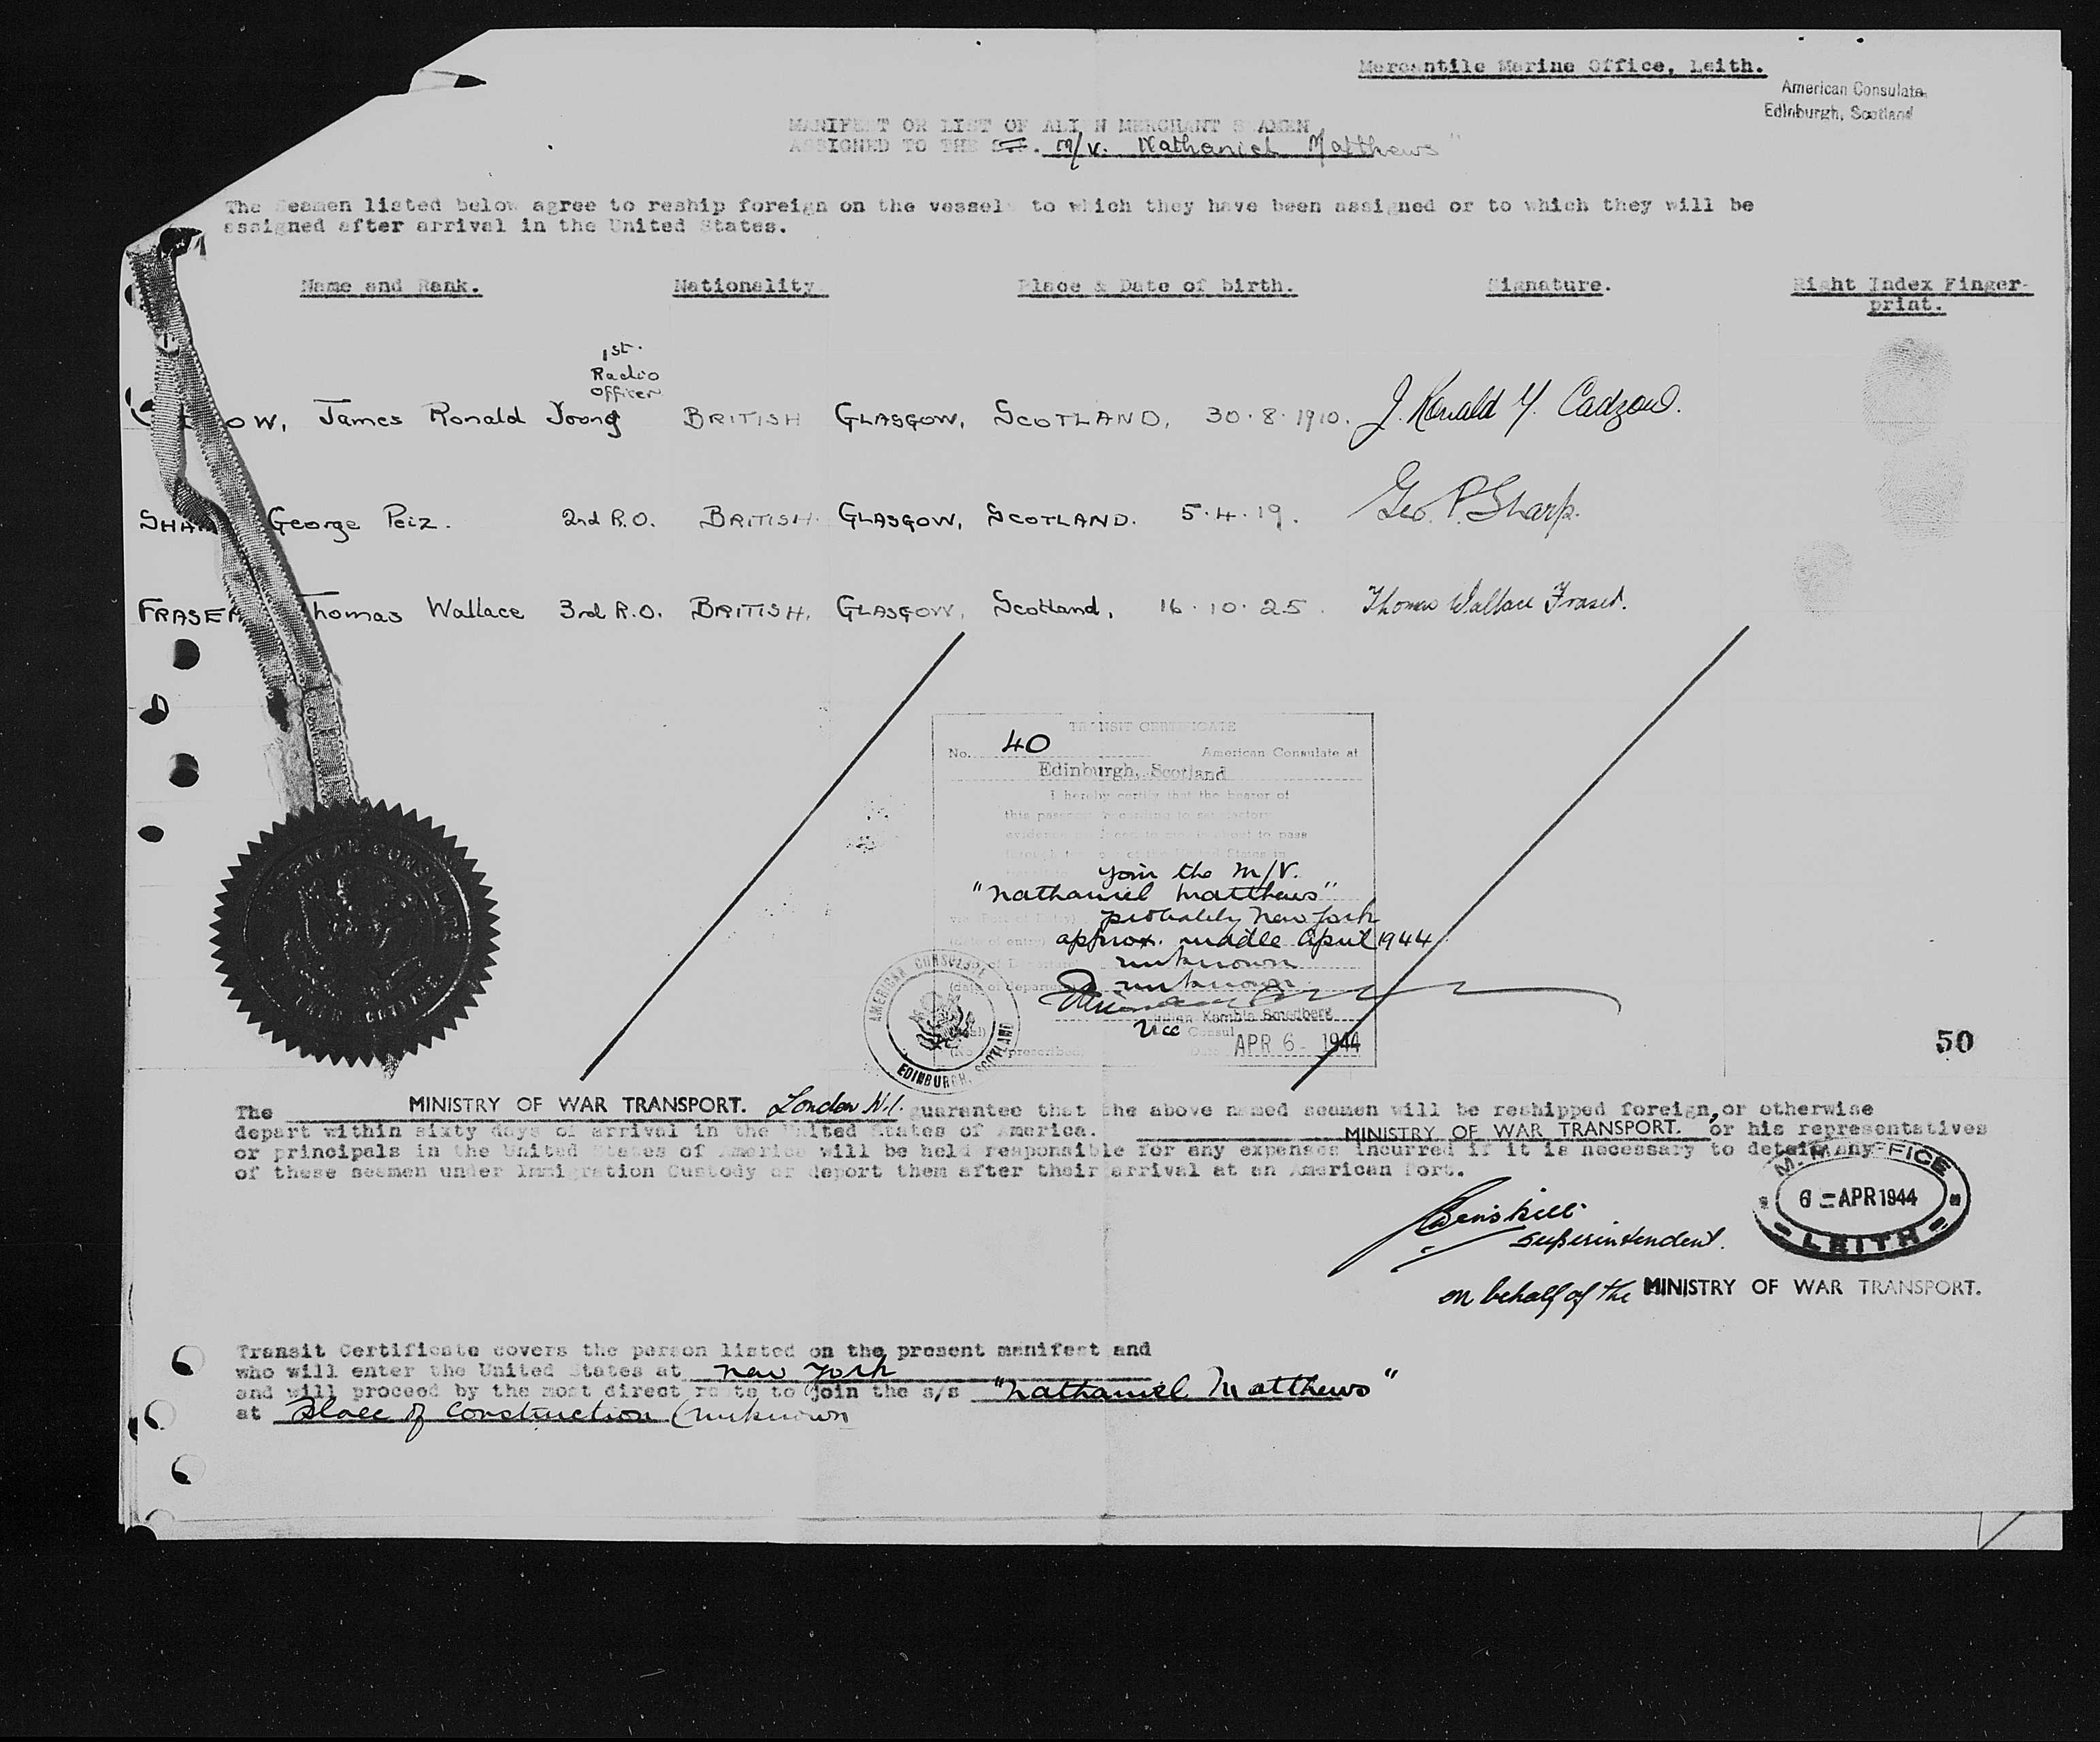 Mercantile Marine Office, Leith.
American Consulate,
Edinburgh, Scotland
MANIFEST OR LIST OF ALIEN MERCHANT SEAMEN
ASSIGNED TO THE S.S. M/V. Nathaniel Matthews"
The Seamen listed below agree to reship foreign on the vessels to which they have been assigned or to which they will be
assigned after arrival in the United States.
Name and Rank. Nationality. Place & Date of birth. Signature. Right Index Finger-
print.
1st.
Radio
Officer
OW, James Ronald Young BRITISH GLASGOW, SCOTLAND, 30.8.1910. J. Ronald Y. Cadzow.
SHAR George Peiz. 2nd R.O. BRITISH. GLASGOW, SCOTLAND. 5.4.19. Geo. P. Sharp.
FRASER Thomas Wallace 3rd R.O. BRITISH. GLASGOW, Scotland, 16.10.25. Thomas Wallace Fraser.
TRANSIT CERTIFICATE
No. 40 American Consulate at
Edinburgh, Scotland
I hereby certify that the bearer of
this passport according to satisfactory
evidence about to pass
through the United States in
join the M/V.
"Nathaniel Matthews"
probably New York
(date of entry) approx. middle April 1944
unknown
(date of departure) unknown
Kemble Smedberg
Vice Consul
(No prescribed) Date APR 6 - 1944
AMERICAN CONSULATE
EDINBURGH, SCOTLAND
AMERICAN CONSULATE
50
The MINISTRY OF WAR TRANSPORT. London W.1. guarantee that the above named seamen will be reshipped foreign, or otherwise
depart within sixty days of arrival in the United States of America. MINISTRY OF WAR TRANSPORT. or his representatives
or principals in the United States of America will be held responsible for any expenses incurred if it is necessary to detain any
of these seamen under Immigration Custody or deport them after their arrival at an American Port.
M. M. OFFICE
6 - APR 1944
LEITH
Superintendent.
on behalf of the MINISTRY OF WAR TRANSPORT.
Transit Certificate covers the person listed on the present manifest and
who will enter the United States at New York
and will proceed by the most direct route to join the s/s "Nathaniel Matthews"
at Place of Construction (unknown